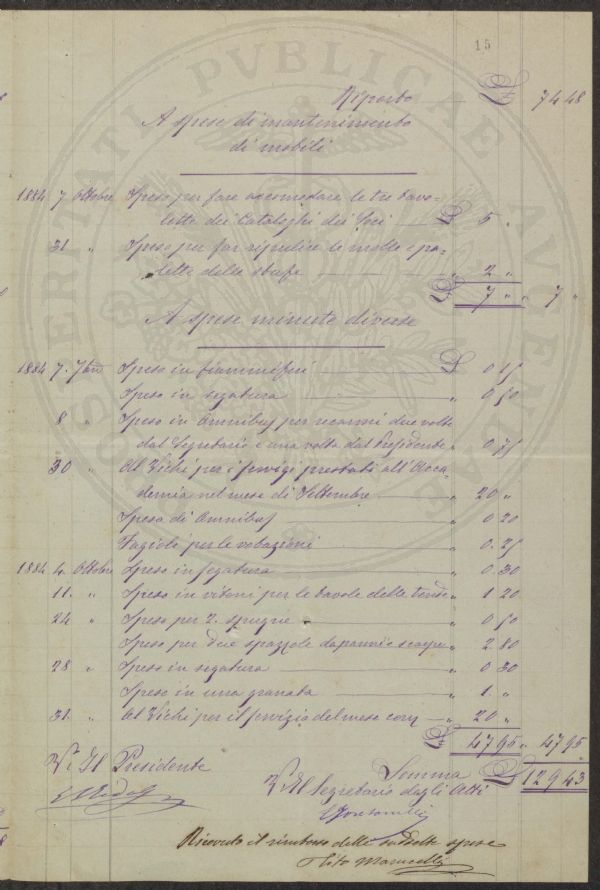 15
Riporto £ 74 48
A spese di mantenimento
di mobili
1884 7 Ottobre Speso per fare accomodare le tre tavo-
lette dei Cataloghi dei Soci £ 5 "
31 " Speso per far ripulire le molle e pa-
letta delle stufe " 2 "
£ 7 " " 7 "
A spese minute diverse
1884 7. 7bre Speso in fiammiferi £ 0 15
Speso in segatura " 0 50
8 " Speso in Omnibus per recarmi due volte
dal Segretario e una volta dal Presidente " 0 75
30 " Al Vichi per i servizi prestati all'Acca-
demia nel mese di Settembre " 20 "
Spesa di Omnibus " 0 20
Fagioli per le votazioni " 0. 25
1884 4. Ottobre Speso in segatura " 0 30
11. " Speso in vitoni per le tavole delle tende " 1 20
24 " Speso per 2. spugne " 0 50
Speso per due spazzole da panni e scarpe " 2 80
28 " Speso in segatura " 0 30
Speso in una granata " 1 "
31. " Al Vichi per il servizio del mese corr. " 20 "
£ 47 95 " 47 95
Somma £ 129 43
V. Il Presidente
V. Il Segretario degli Atti
Ricevuto il rimborso delle suddette spese
Tito Marucelli
POSTERITATI PVBLICAE AVGENDAE